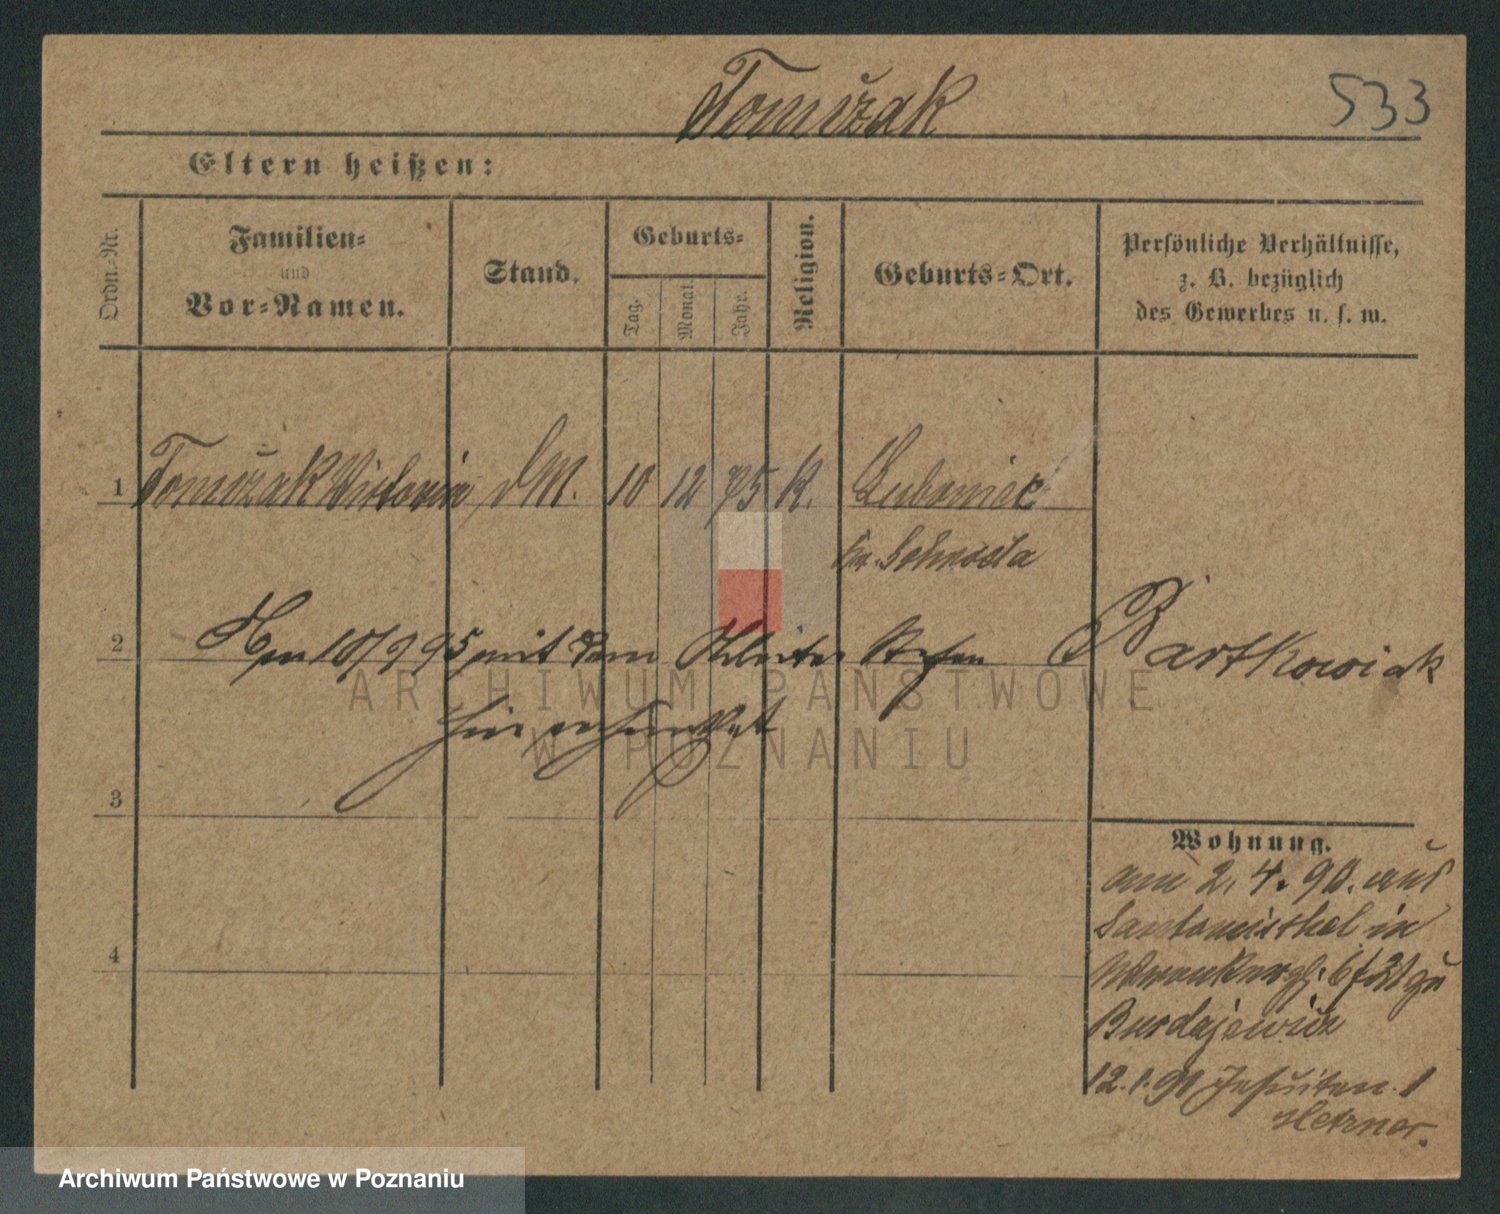 Tomczak
533
Eltern heißen:
Ordn.-Nr.
Familien-
und
Vor-Namen.
Stand.
Geburts-
Tag.
Monat.
Jahr.
Religion.
Geburts-Ort.
Persönliche Verhältnisse,
z. B. bezüglich
des Gewerbes u. s. w.
1 Tomczak Victoria dM. 10 12 75 K.
Kr. Schroda
2 10/9 95 mit dem Arbeiter Bartkowiak
hier verheirathet
ARCHIWUM PAŃSTWOWE
W POZNANIU
3
Wohnung.
am 2. 4. 90. aus
Santomischel in
Wronkerstr. 6 bei
4
12. 1. 91 Jesuiten. 1
Archiwum Państwowe w Poznaniu